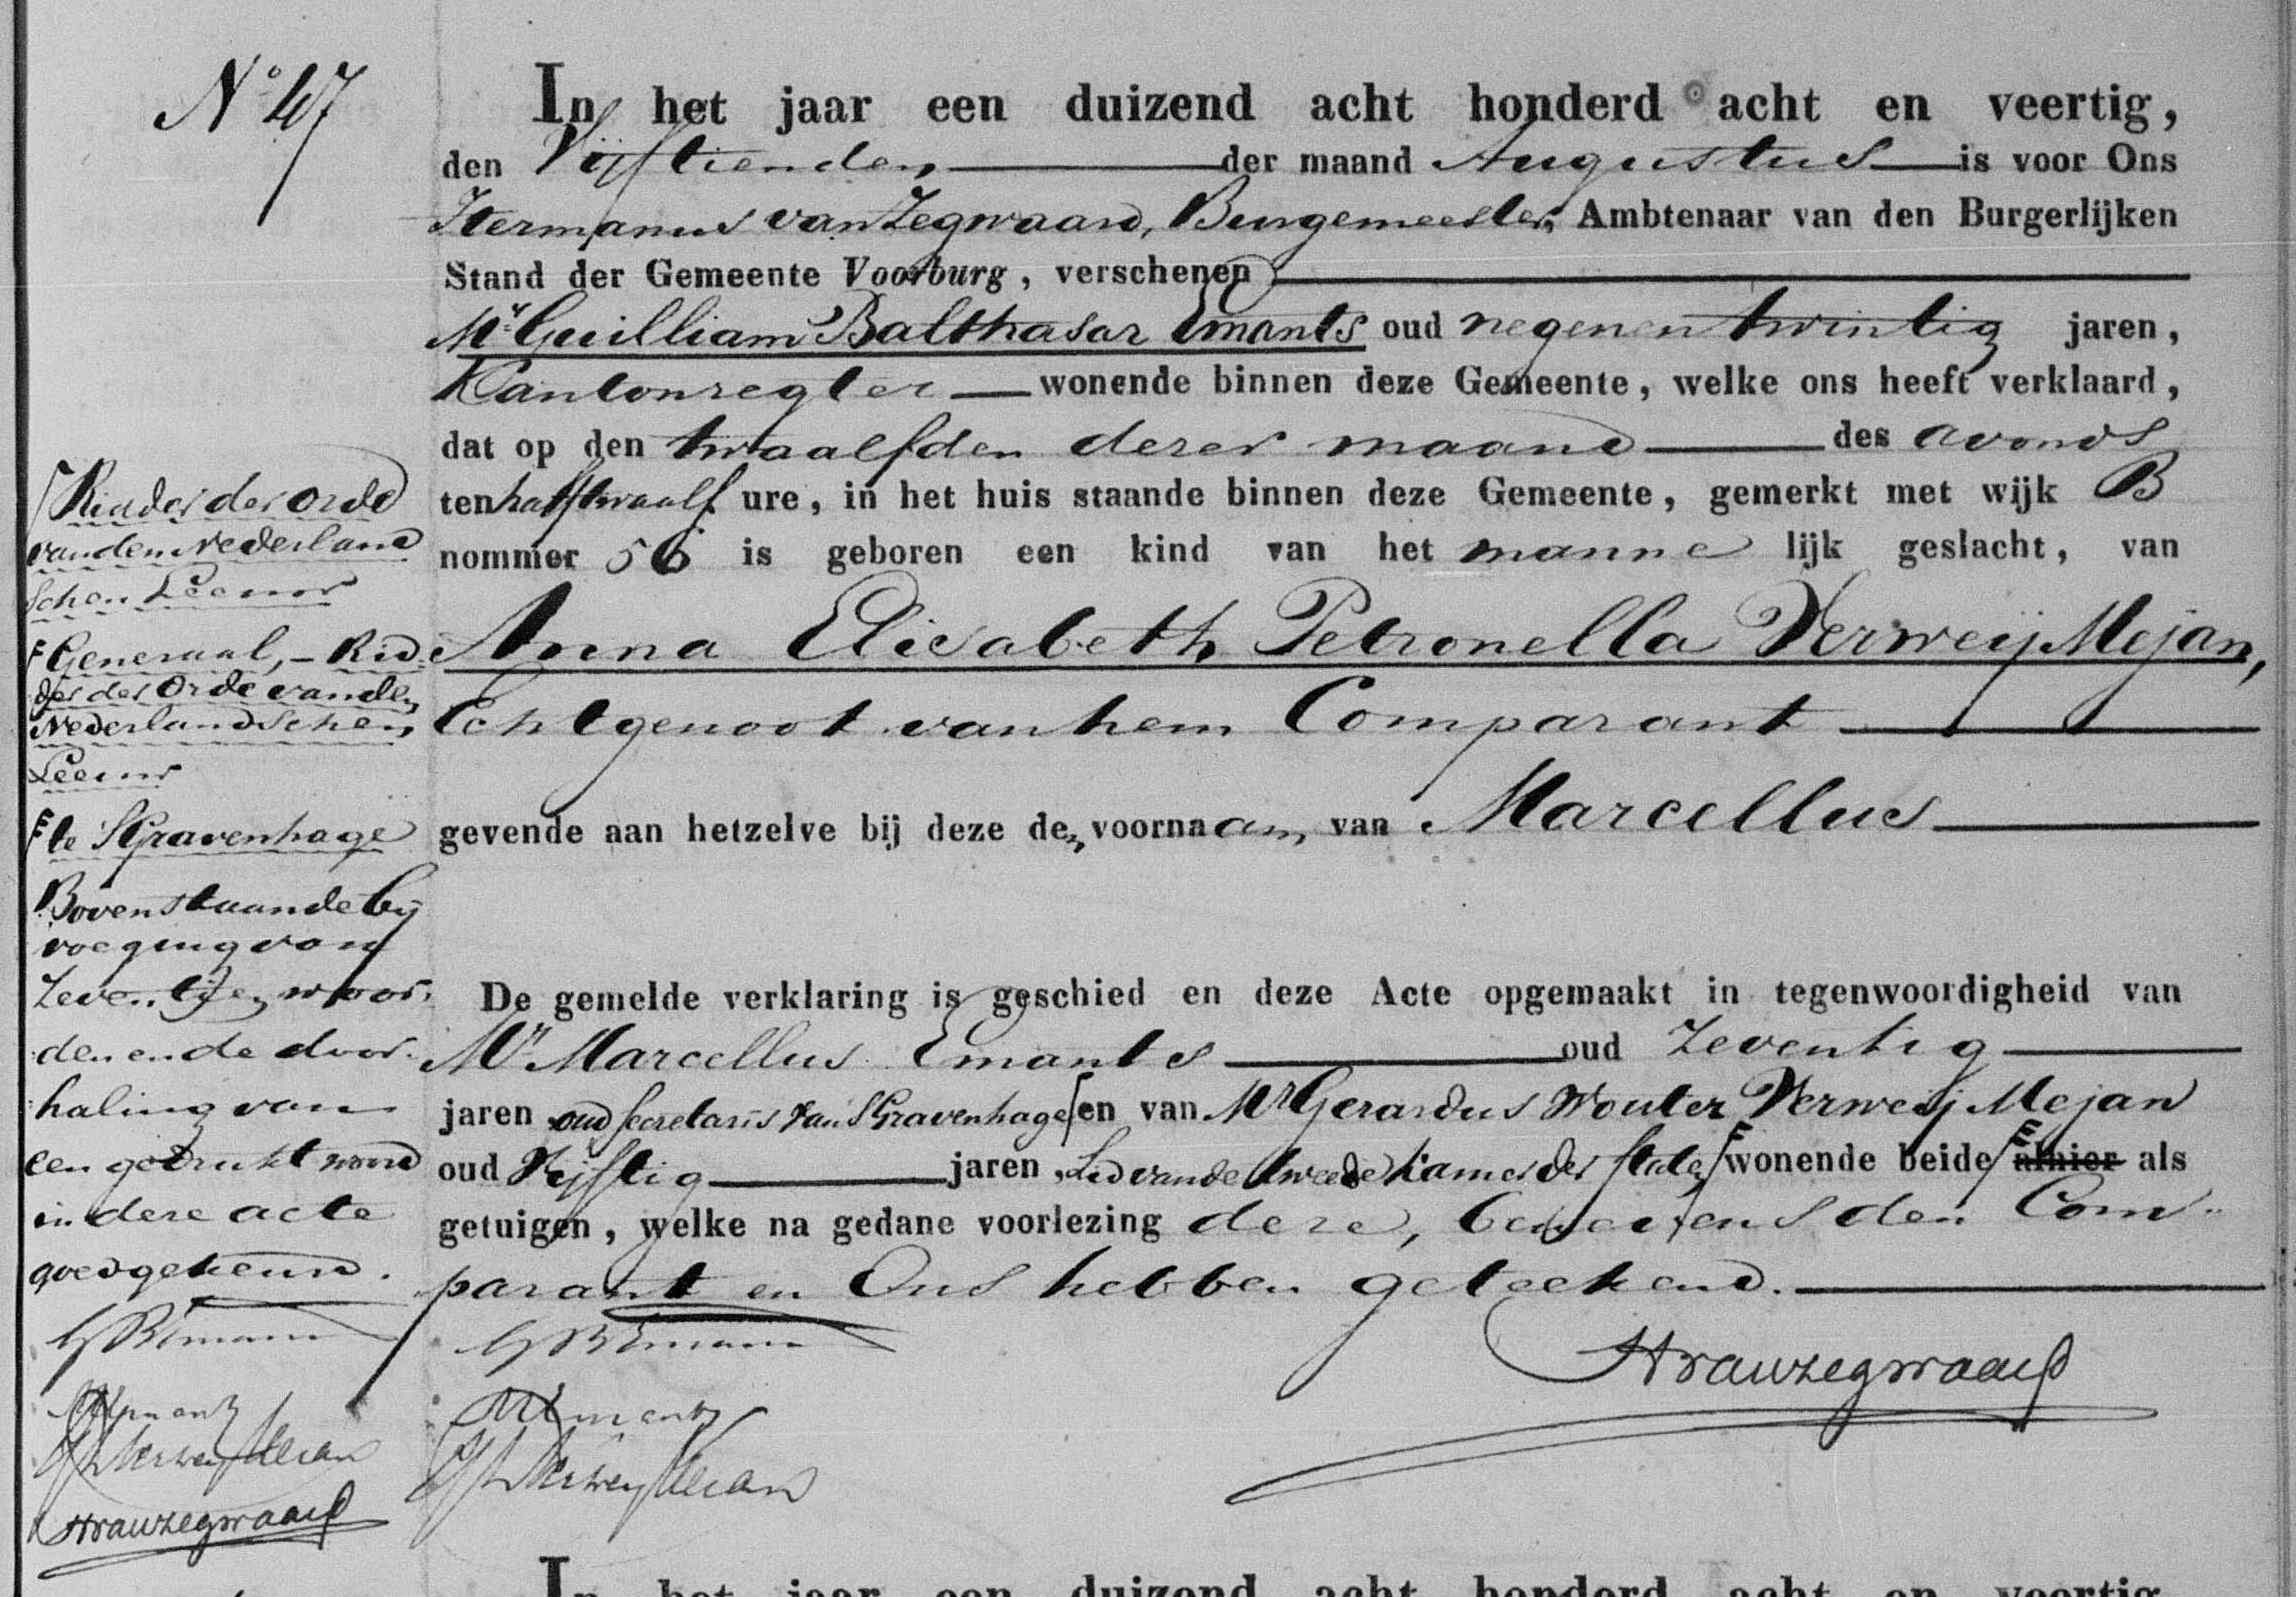 No 47
In het jaar een duizend acht honderd acht en veertig,
den Vijftienden der maand Augustus is voor Ons
Hermanus van Zegwaard, Burgemeester, Ambtenaar van den Burgerlijken
Stand der Gemeente Voorburg, verschenen
Mr. Guilliam Balthasar Emants oud negen en twintig jaren,
Kantonregter wonende binnen deze Gemeente, welke ons heeft verklaard,
dat op den twaalfden dezer maand des avonds
ten half twaalf ure, in het huis staande binnen deze Gemeente, gemerkt met wijk B
nommer 56 is geboren een kind van het manne lijk geslacht, van
Anna Elisabeth Petronella Verweij Mejan,
Echtgenoot van hem Comparant
gevende aan hetzelve bij deze den voornaam van Marcellus
De gemelde verklaring is geschied en deze Acte opgemaakt in tegenwoordigheid van
Mr Marcellus Emants oud Zeventig
jaren oud secretaris van SGravenhage en van Mr Gerardus Wouter Verweij Mejan
oud Vijftig jaren, Lid van de tweede kamer der staten wonende beide alhier als
getuigen, welke na gedane voorlezing deze, benevens den Com-
parant en Ons hebben geteekend.
Ridder der orde
van den Nederland
schen Leeuw
Generaal, - Rid
der der Orde van den
Nederlandschen
Leeuw
te SGravenhage
Bovenstaande bij
voeging van
Zeventien woor
den en de door
haling van
een gedrukt woord
in deze acte
goedgekeurd.
GBEmants
MEmants
GWVerweyMejan
HvanZegwaard
GBEmants
MEmants
GWVerweyMejan
HvanZegwaard
In het jaar een duizend acht honderd acht en veertig